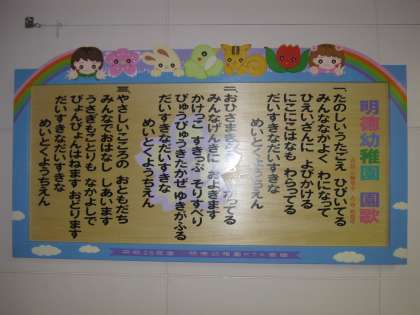 明徳幼稚園 園歌
一、たのしいうたごえ ひびいてる
みんななかよく わになって
ひえいざんに よびかける
にこにこはなも わらってる
だいすきなだいすきな
めいとくようちえん
二、おひさまきらきら
みんなげんきに およぎます
かけっこ すきっぷ そりすべり
ぴゅうぴゅうきたかぜ ゆきがふる
だいすきなだいすきな
めいとくようちえん
三、やさしいこころの おともだち
みんなでおはなし しあいます
うさぎもことりも なかよしで
ぴょんぴょんはねます おどります
だいすきなだいすきな
めいとくようちえん